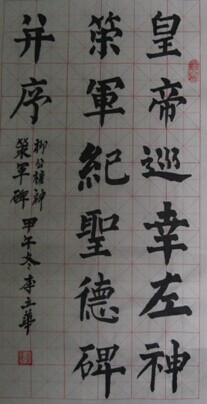 皇帝巡幸左神
策軍紀聖德碑
并序
柳公權神
策軍碑 甲午冬 李立華